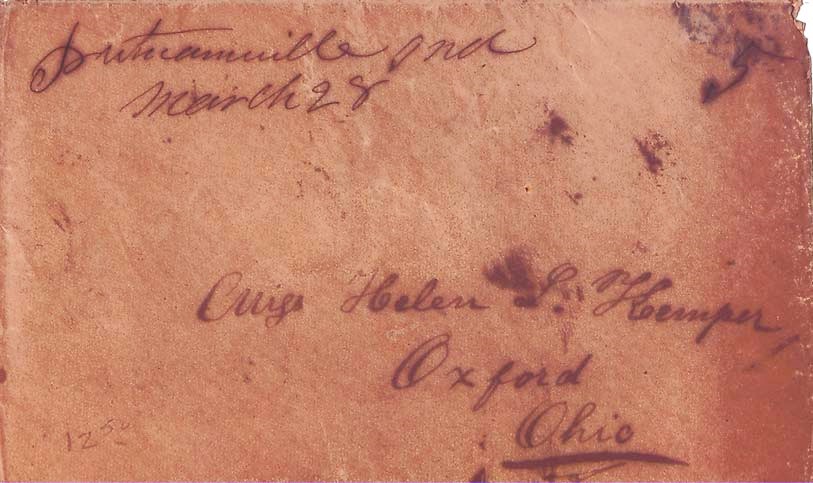 Putnamville Ind
March 28
5
Miss Helen S. Kemper,
Oxford
Ohio
12 50